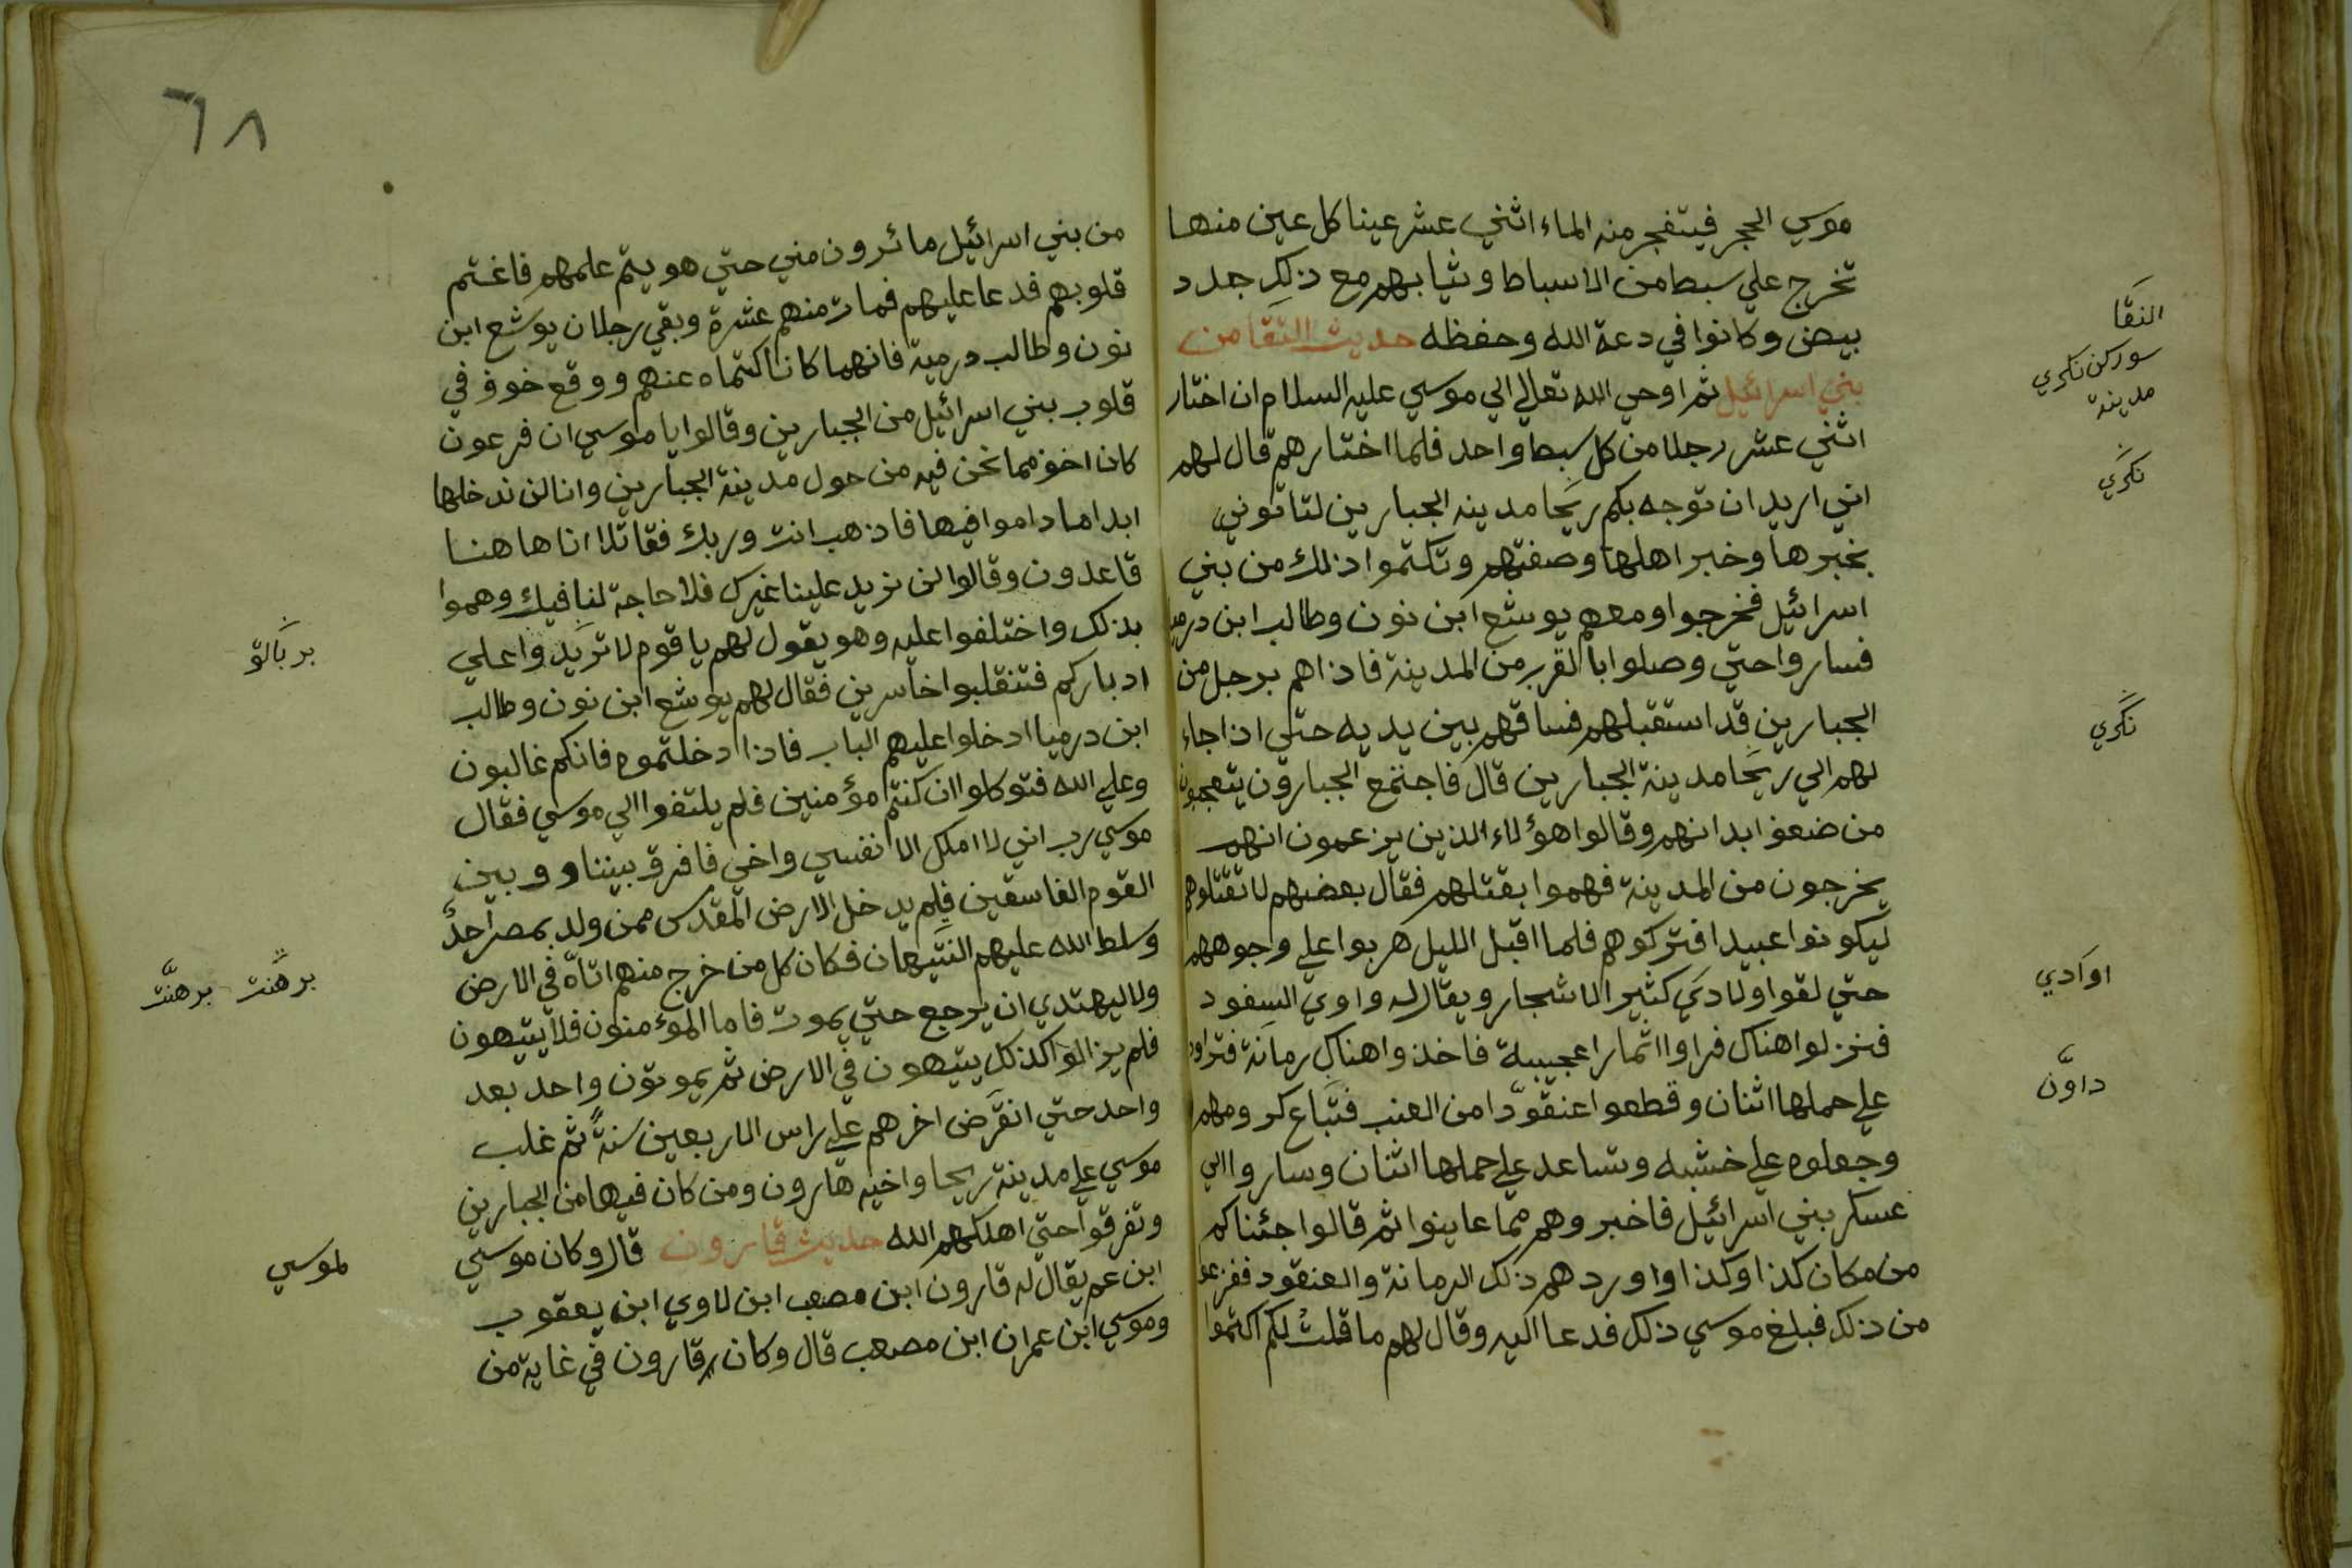 موسي الحجر فيتفجر منه الماء اثني عشر عينا كل عين منها
تخرج علي سبط من الاسباط وثيابهم مع ذلك جدد
بيض وكانوا في دعة الله وحفظه حديث النقا من
بني اسرائيل ثم اوحي الله تعالي الي موسي عليه السلام ان اختار
اثني عشر رجلا من كل سبط واحد فلما اختارهم قال لهم
اني اريد ان توجه بكم ريحا مدينه الجبارين لتاتوني
بخبرها وخبر اهلها وصفتهم وتكتموا ذلك من بني
اسرائيل فخرجوا ومعهم يوشع ابن نون وطالب ابن درميا
فساروا حتي وصلوا بالقرب من المدينة فاذا هم برجل من
الجبارين قد استقبلهم فساقهم بين يديه حتي اذا جاء
لهم الي ريحا مدينة الجبارين قال فاجتمع الجبارون يتعجبون
من ضعف ابدانهم وقالوا هؤلاء الذين يزعمون انهم
يخرجون من المدينة فهموا بقتلهم فقال بعضهم لا تقتلوهم
ليكونوا عبيدا فتركوهم فلما اقبل الليل هربوا علي وجوههم
حتي لقوا ولادي كثير الاشجار ويقال له واوي السفود
فنزلوا هناك فراوا اثمارا عجيبة فاخذوا هناك رمانة
علي حملها اثنان وقطعوا عنقودا من العنب
وجعلوه علي خشبه وتساعد علي حملها اثنان وساروا الي
عسكر بني اسرائيل فاخبروهم مما عاينوا ثم قالوا جئناكم
من مكان كذا وكذا واوردهم ذلك الرمانة والعنقود
من ذلك فبلغ موسي ذلك فدعا اليه وقال لهم ما قلت لكم اكتموا
النقا
سوركن نكري
مدينة
نكري
نكري
اوادي
داون
٦٨
من بني اسرائيل ما ئرون مني حتي هو يتم علمهم فاغتم
قلوبهم فدعا عليهم فمات منهم عشرة وبقي رجلان يوشع ابن
نون وطالب درمية فانهما كانا اكتماه عنهم ووقع خوف في
قلوب بني اسرائيل من الجبارين وقالوا يا موسي ان فرعون
كان اخوف مما نحن فيه من حول مدينة الجبارين وانا لن ندخلها
ابدا ما داموا فيها فاذهب انت وربك فقاتلا انا هاهنا
قاعدون وقالوا لن نريد علينا غيرك فلا حاجة لنا فيك وهموا
بذلك واختلفوا عليه وهو يقول لهم يا قوم لا تريدوا علي
ادباركم فتنقلبوا خاسرين فقال لهم يوشع ابن نون وطالب
ابن درميا ادخلوا عليهم الباب فاذا دخلتموه فانكم غالبون
وعلي الله فتوكلوا ان كنتم مؤمنين فلم يلتفوا الي موسي فقال
موسي رب اني لا املك الا نفسي واخي فافرق بيننا ووبين
القوم الفاسقين فلم يدخل الارض المقدس ممن ولد بمصر احد
وسلط الله عليهم التيهان فكان كل من خرج منهم اتاه في الارض
ولا ليهتدي ان يرجع حتي يموت فاما المؤمنون فلا يتيهون
فلم يزالوا كذلك يتيهون في الارض ثم يموتون واحد بعد
واحد حتي انقرض اخرهم علي راس الاربعين سنة ثم غلب
موسي علي مدينة ريحا واخيه هارون ومن كان فيها من الجبارين
وتفرقوا حتي اهلكهم الله حديث قارون قال وكان موسي
ابن عم يقال له قارون ابن مصعب ابن لاوي ابن يعقوب
وموسي ابن عمران ابن مصعب قال وكان قارون في غاية من
بربالق
برهنت برهنت
لموسي